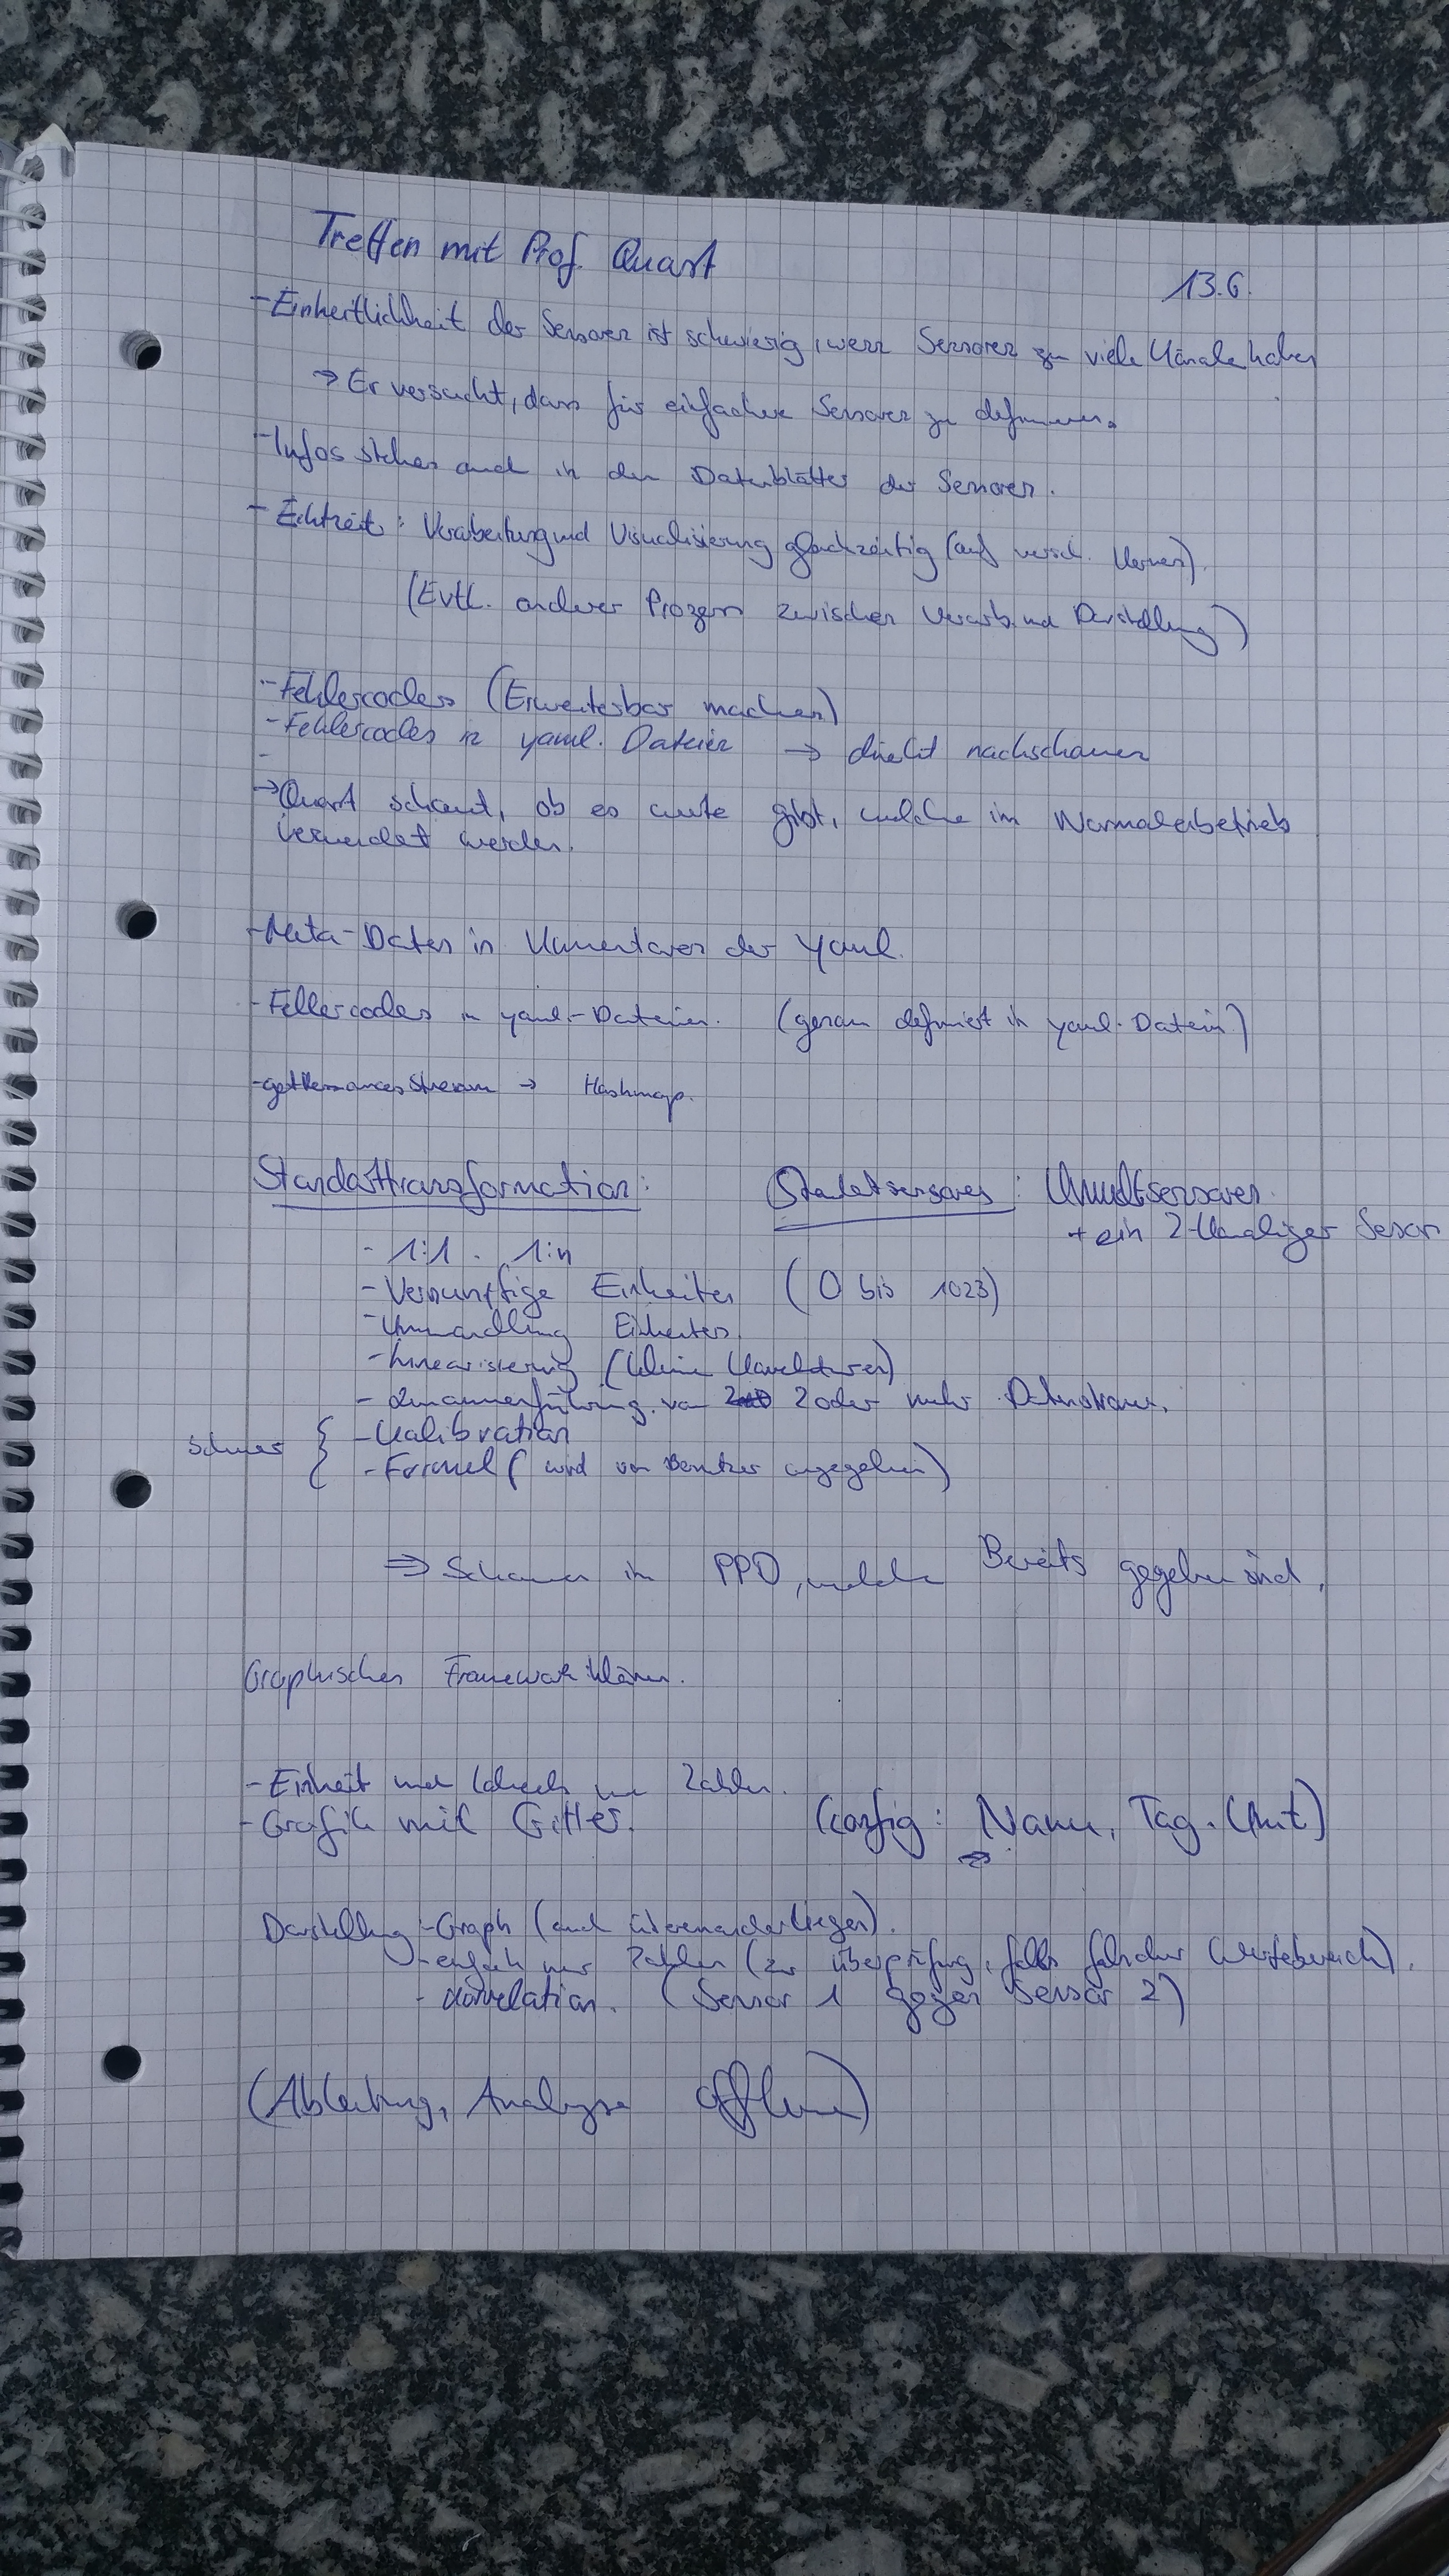 Treffen mit Prof. Quart
13.6.
- Einheitlichkeit der Sensoren ist schwierig, wenn Sensoren zu viele Kanäle haben
→ Er versucht, dass für einfachere Sensoren zu definieren.
- Infos stehen auch in den Datenblätter der Sensoren.
- Echtzeit: Verarbeitung und Visualisierung gleichzeitig (auf versch. Kernen).
(Evtl. anderer Prozess zwischen Verarb. und Darstellung)
- Fehlercodes (Erweiterbar machen)
- Fehlercodes in yaml. Dateien → direkt nachschauen
-
→ Quart schaut, ob es welche gibt, welche im Normalerbetrieb
verwendet werden.
- Meta-Daten in Kommentaren der Yaml.
- Fehlercodes in yaml-Dateien. (genau definiert in yaml-Datein)
- getRessourcesStream → Hashmap.
Standarttransformation:
Standartsensores: Umweltsensoren
+ ein 2-Kanaliger Sensor
- 1:1 . 1:n
- Vernünftige Einheiten (0 bis 1023)
- Umwandlung Einheiten.
- Linearisierung (kleine Kanalturen)
- Zusammenführung von 2 oder mehr Datenströmen.
schwer { - Kalibration
- Formel (wird von Benutzer angegeben)
⇒ Schauen in PPD, welche Bereits gegeben sind.
Graphisches Framework klären.
- Einheit und
Zahlen.
- Grafik mit Gitter.
(config: Name, Tag. Unit)
⇒
Darstellung - Graph (auch übereinanderliegen).
- einfach nur Zahlen (zur überprüfung, falls falscher Wertebereich).
- Korrelation. (Sensor 1 gegen Sensor 2)
(Ableitung, Analyse offline)